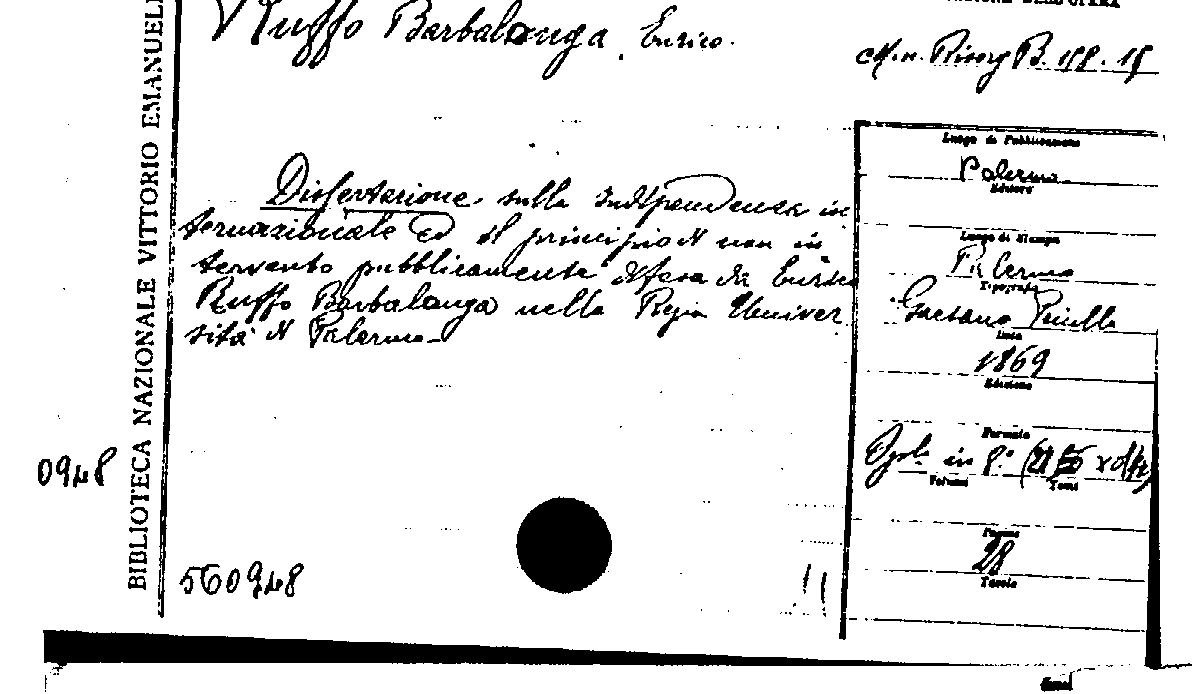 BIBLIOTECA NAZIONALE VITTORIO EMANUELE
Ruffo Barbalonga, Enrico.
Dissertazione sulla indipendenza in
ternazionale ed il principio di non in
tervento pubblicamente difesa da Enrico
Ruffo Barbalonga nella Regia Univer
sità di Palermo
0948
560948
11
Luogo di Pubblicazione
Palermo
Editore
Luogo di Stampa
Palermo
Tipografia
Gaetano Priulla
Data
1869
Edizione
Formato
in 8.°
Volumi Tomi
Pagine
28
Tavole